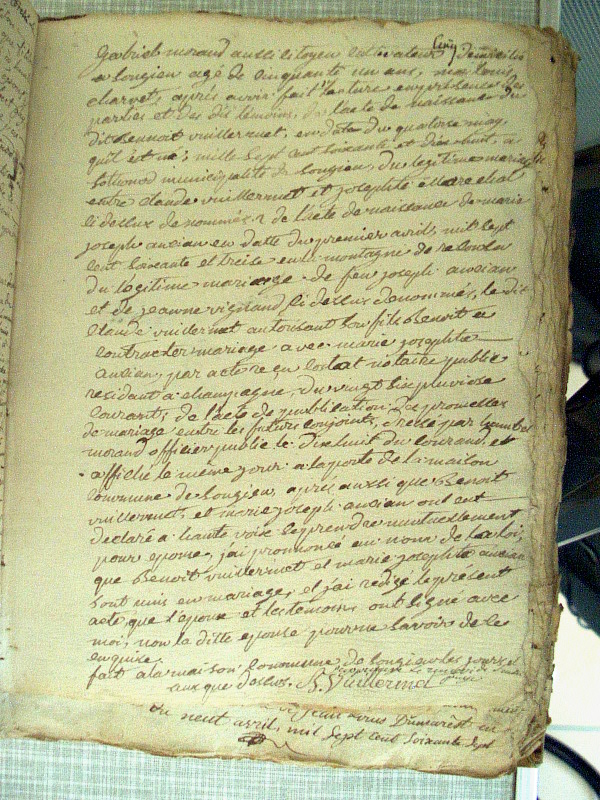 cinq
Gabriel morand aussi citoyen cultivateur domicilié
a longieu agé de cinquante un ans,
charvet, après avoir fait lecture en présence des
parties et des dit temoins, de l'acte de naissance du
dit Benoit vuillermet, en date du quatorze may
quil est né, mille sept cent soixante et dix huit, a
municipalité de longieu, du légitime mariage
entre claude vuillermet et josephte marechal
ci dessus denommés, de l'acte de naissance de marie
joseph ancian en datte du premier avril, mil sept
cent soixante et treize en la montagne de
du légitime mariage de feu joseph ancian
et de jeanne vignand ci dessus denommés, le dit
claude vuillermet autorisant son fils Benoit a
contracter mariage avec marie josephte
ancian, par acte reçu notaire public
residant a champagne, du vingt six pluviose
courant, de l'acte de publication des promesses
de mariage entre les futurs conjoints, dressé par humbert
morand officier public le dixhuit du courant et
affiché le même jour a la porte de la maison
commune de longieu, après aussi que Benoit
vuillermet, et marie joseph ancian ont eut
declaré a haute voix se prendre mutuellement
pour epoux, j'ai prononcé au nom de la loi,
que Benoit vuillermet et marie josephte ancian
sont unis en mariage, et j'ai redigé le présent
acte que l'epoux et les temoins ont signé avec
moi, non la ditte epouse pour ne savoir de ce
enquise.
fait a la maison commune de longieu les jours et
an que dessus. B. Vuillermet
du neuf avril, mil sept cent soixante sept